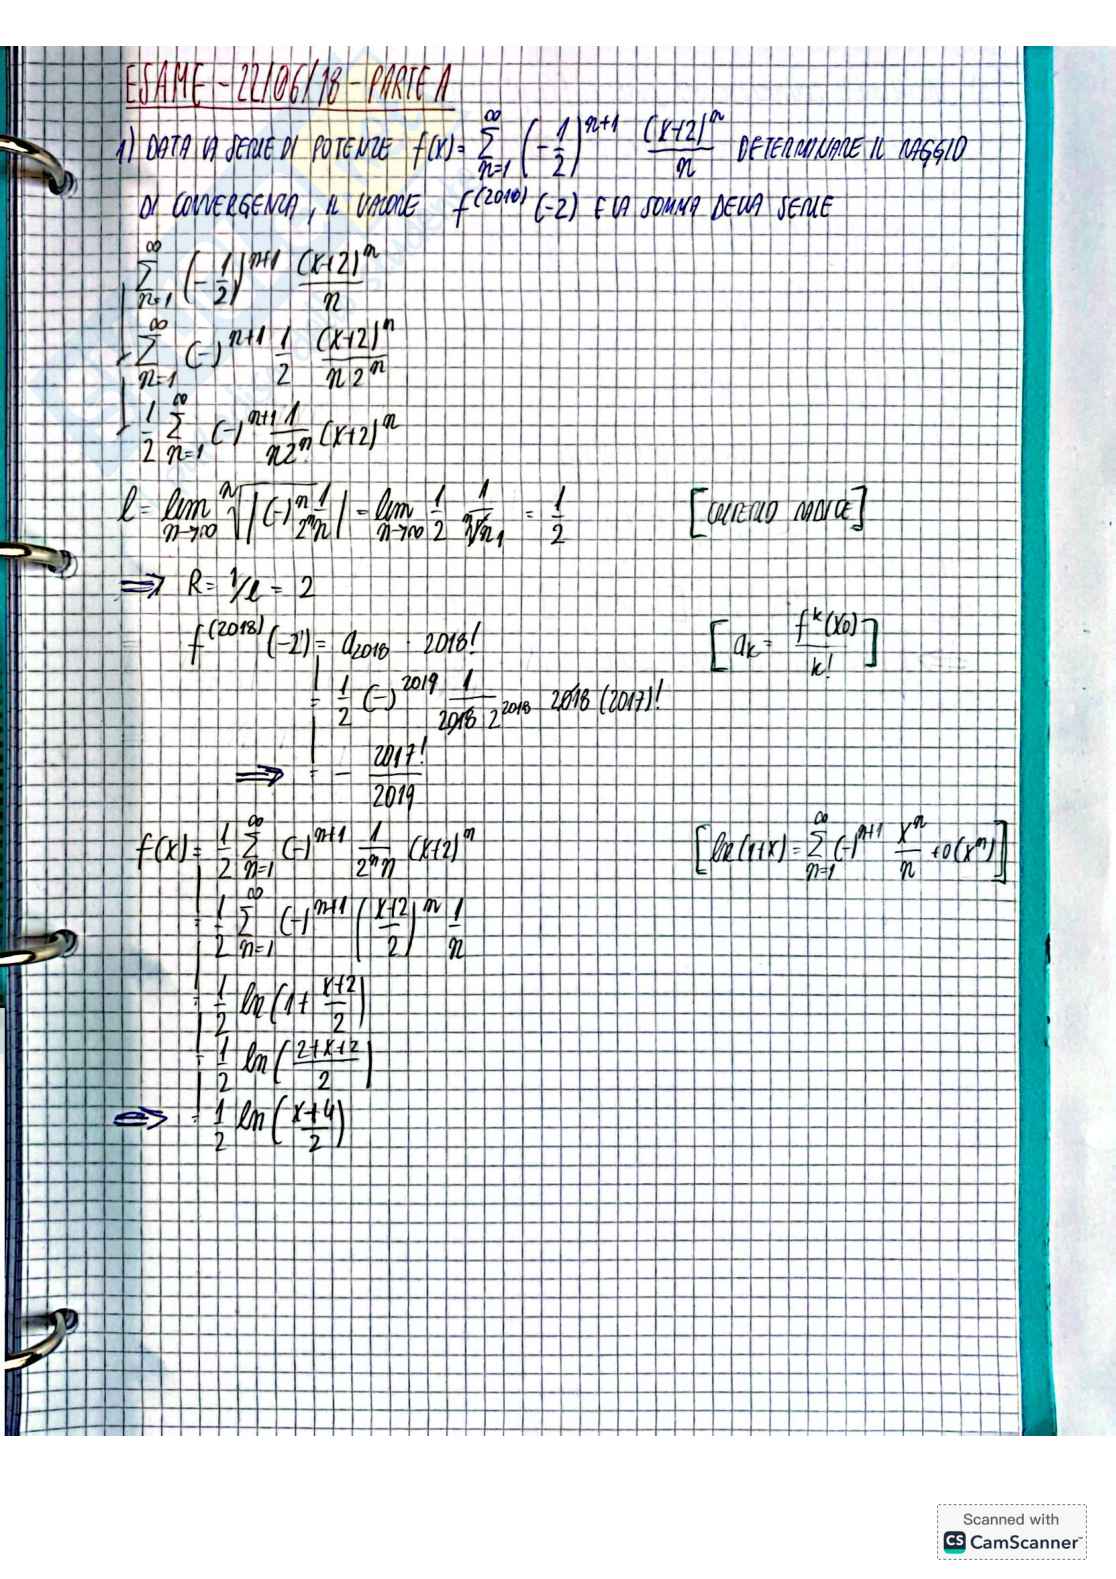 ESAME - 22/06/18 - PARTE A
1) DATA LA SERIE DI POTENZE f(x) = ∑_{n=1}^{∞} (-1/2)^{n+1} (x+2)^n/n DETERMINARE IL RAGGIO
DI CONVERGENZA, IL VALORE f^{(2018)}(-2) E LA SOMMA DELLA SERIE
∑_{n=1}^{∞} (-1/2)^{n+1} (x+2)^n/n
∑_{n=1}^{∞} (-)^{n+1} 1/2 (x+2)^n/(n 2^n)
1/2 ∑_{n=1}^{∞} (-)^{n+1} 1/(n2^n) (x+2)^n
l = lim_{n→∞} ⁿ√|(-)^n 1/(2^n n)| = lim_{n→∞} 1/2 1/ⁿ√n = 1/2 [CRITERIO RADICE]
⇒ R = 1/l = 2
f^{(2018)}(-2) = a_{2018} · 2018! [a_k = f^k(x_0)/k!]
= 1/2 (-)^{2019} 1/(2018 2^{2018}) 2018 (2017)!
⇒ = - 2017!/2019
f(x) = 1/2 ∑_{n=1}^{∞} (-)^{n+1} 1/(2^n n) (x+2)^n [ln(1+x) = ∑_{n=1}^{∞} (-)^{n+1} x^n/n + o(x^n)]
= 1/2 ∑_{n=1}^{∞} (-)^{n+1} ((x+2)/2)^n 1/n
= 1/2 ln(1 + (x+2)/2)
= 1/2 ln((2+x+2)/2)
⇒ = 1/2 ln((x+4)/2)
Scanned with
CS CamScanner